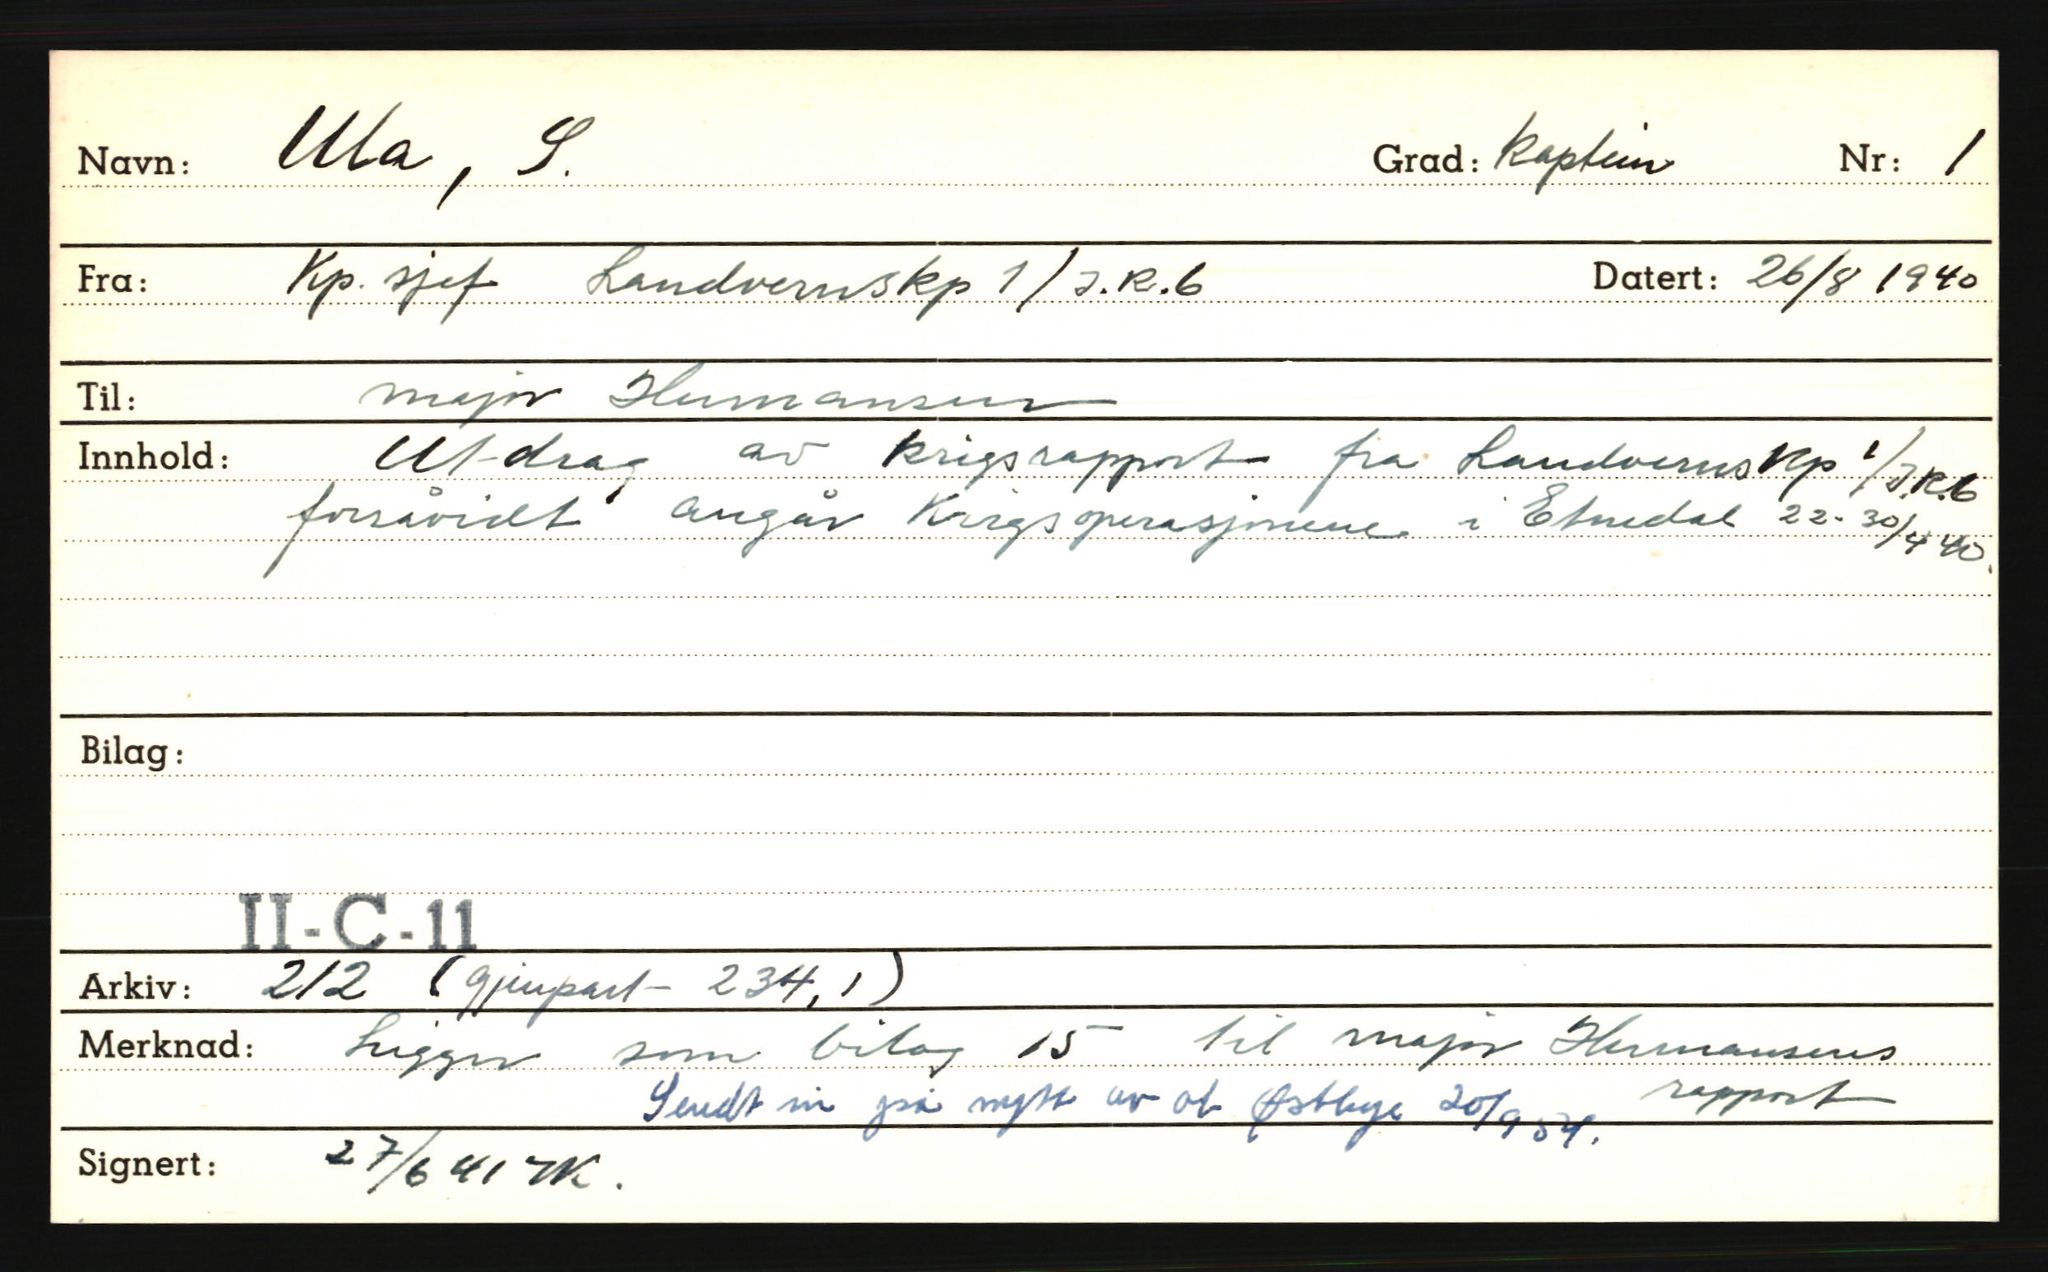 Navn: Ula, S. Grad: Kaptein Nr: 1
Fra: Kp. sjef Landvernskp 1/I.R.6 Datert: 26/8 1940
Til: major Hermansen
Innhold: Utdrag av krigsrapport fra Landvernskp 1/I.R.6
forsåvidt angår Krigsoperasjonene i Etnedal 22-30/4 40.
Bilag:
II-C-11
Arkiv: 212 (gjenpart - 234,1)
Merknad: Ligger som bilag 15 til major Hermansens
rapport
Sendt inn på nytt av ob Østbye 20/9 54.
Signert: 27/6 41 YK.